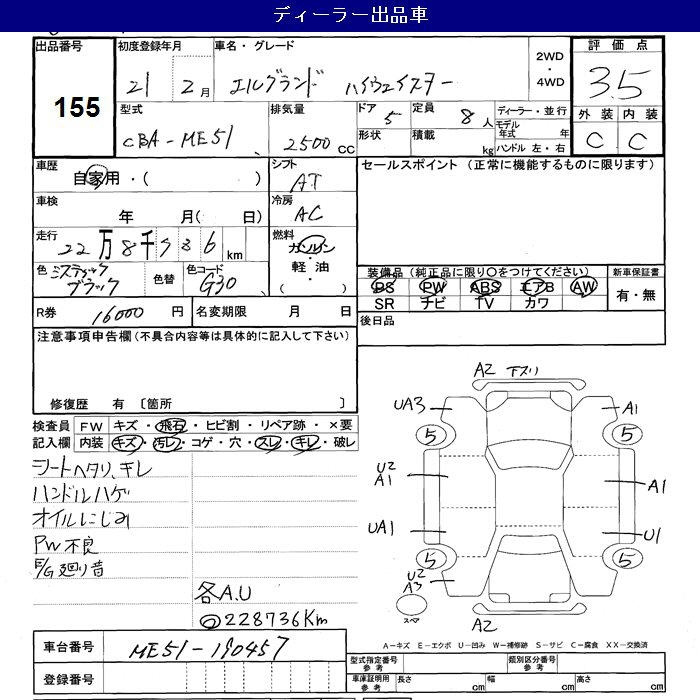 ディーラー出品車
出品番号 初度登録年月 車名・グレード 2WD 評価点
155 21 2月 エルグランド ハイウェイスター ・4WD 3.5
型式 排気量 ドア 5 定員 8人 ディーラー・並行 外装 内装
CBA-ME51 2500cc 形状 積載 kg モデル年式 年 C C
ハンドル 左・右
車歴 シフト セールスポイント (正常に機能するものに限ります)
自家用・( ) AT
車検 冷房
年 月( 日) AC
走行 燃料
22万8千736km ガソリン
色 ミスティックブラック 色替 色コード G30 軽油 装備品 (純正品に限り○をつけてください) 新車保証書
・( ) PS PW ABS エアB AW 有・無
SR ナビ TV カワ
R券 16000円 名変期限 月 日 後日品
注意事項申告欄 (不具合内容等は具体的に記入して下さい)
修復歴 有 〔箇所 〕
検査員 FW キズ・飛石・ヒビ割・リペア跡・×要
記入欄 内装 キズ・汚レ・コゲ・穴・スレ・キレ・破レ
シートヘタリ、キレ
ハンドルハゲ
オイルにじみ
PW不良
E/G廻り音
各A.U
228736Km
A2 下スリ
UA3 A1
5 5
U2
A1 A1
UA1 U1
5 5
U2
A3
スペア A2
A－キズ E－エクボ U－凹み W－補修跡 S－サビ C－腐食 XX－交換済
車台番号 ME51-190457
登録番号
型式指定番号 参考 類別区分番号 参考
車庫証明用 参考 長さ cm 幅 cm 高さ cm